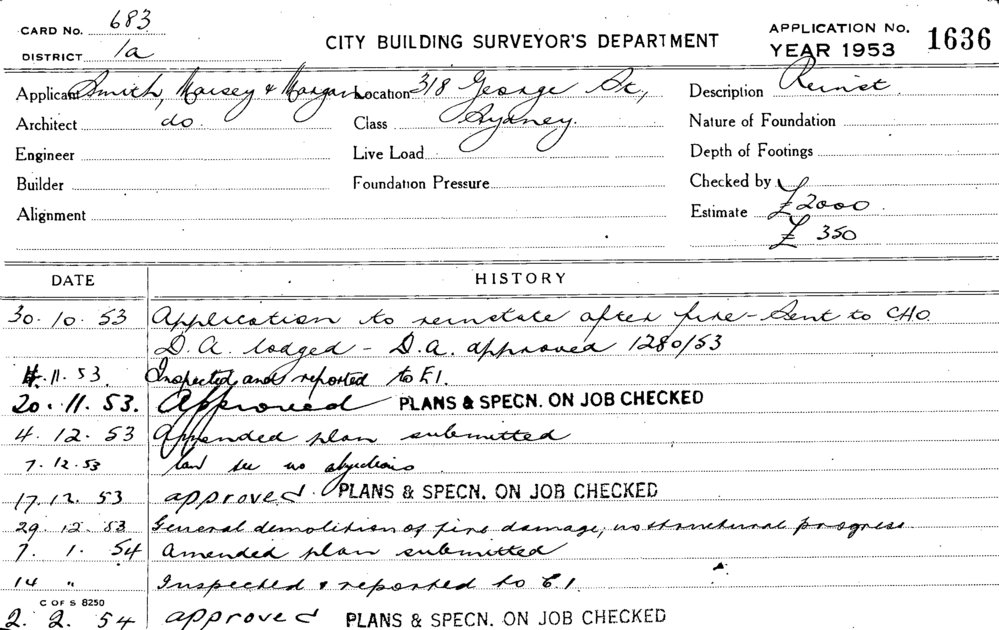 CARD No. 683
DISTRICT 1a
CITY BUILDING SURVEYOR'S DEPARTMENT
APPLICATION No. 1636
YEAR 1953
Applicant Smith, & Morgan Location 318 George St,
Architect do. Class Sydney.
Engineer Live Load
Builder Foundation Pressure
Alignment
Description Reinst.
Nature of Foundation
Depth of Footings
Checked by
Estimate £2000
£ 350
DATE HISTORY
30. 10. 53 Application to reinstate after fire - Sent to CHO.
D.A. lodged - D.A. approved 1280/53
4. 11. 53. Inspected and reported to E.1.
20. 11. 53. Approved PLANS & SPECN. ON JOB CHECKED
4. 12. 53 Amended plan submitted
7. 12. 53 Can see no objections
17. 12. 53 approved PLANS & SPECN. ON JOB CHECKED
29. 12. 53 General demolition of fire damage, no structural progress
7. 1. 54 Amended plan submitted
14 " Inspected & reported to E.1.
C OF S 8250
2. 2. 54 approved PLANS & SPECN. ON JOB CHECKED